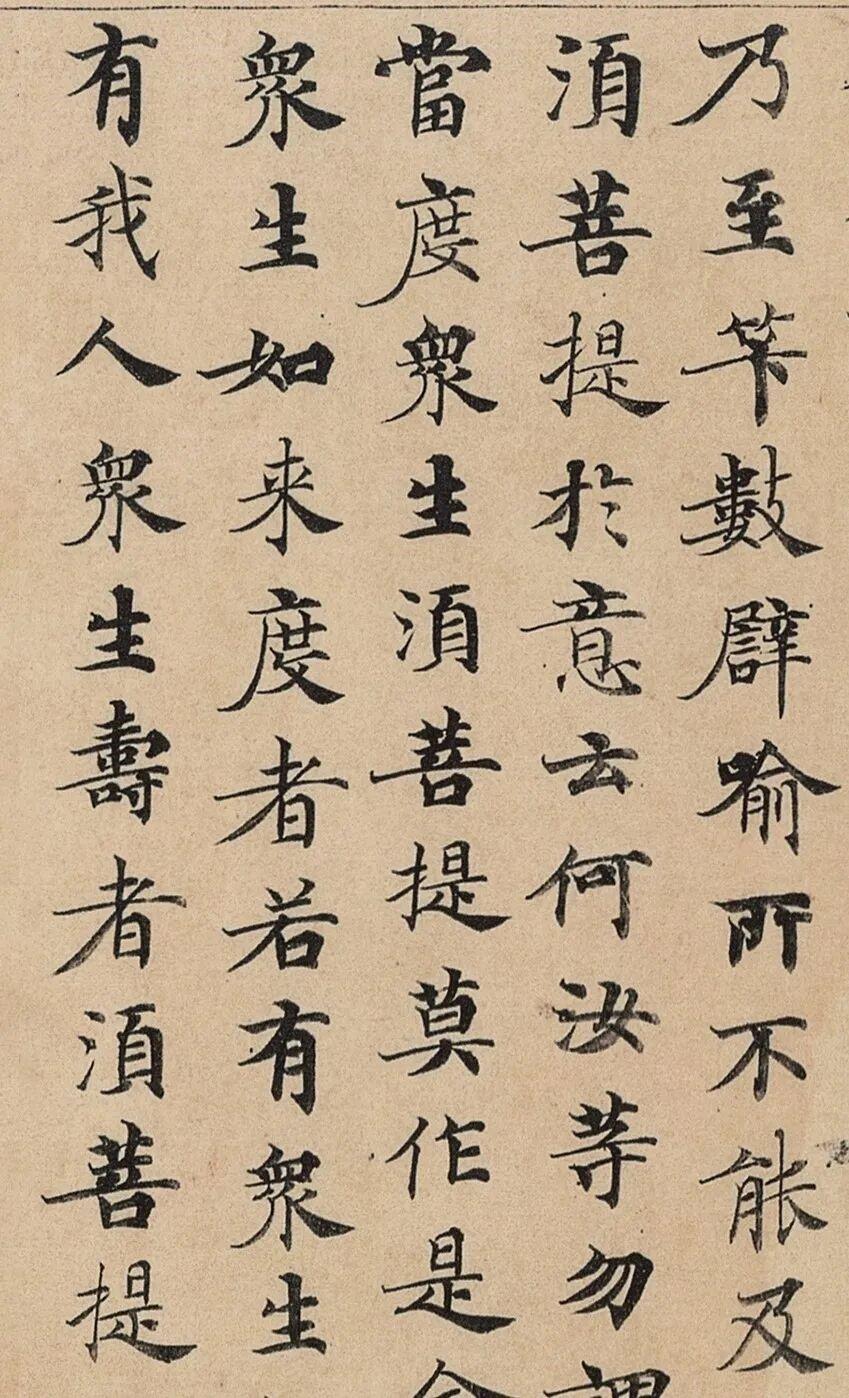 乃至笇數譬喻所不能及
須菩提於意云何汝等勿謂
當度衆生須菩提莫作是念
衆生如来度者若有衆生
有我人衆生壽者須菩提